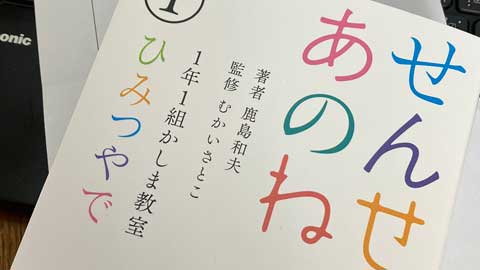 せんせ
あのね
著者 鹿島和夫
監修 むかいさとこ
1年1組かしま教室
ひみつやで
1
onic